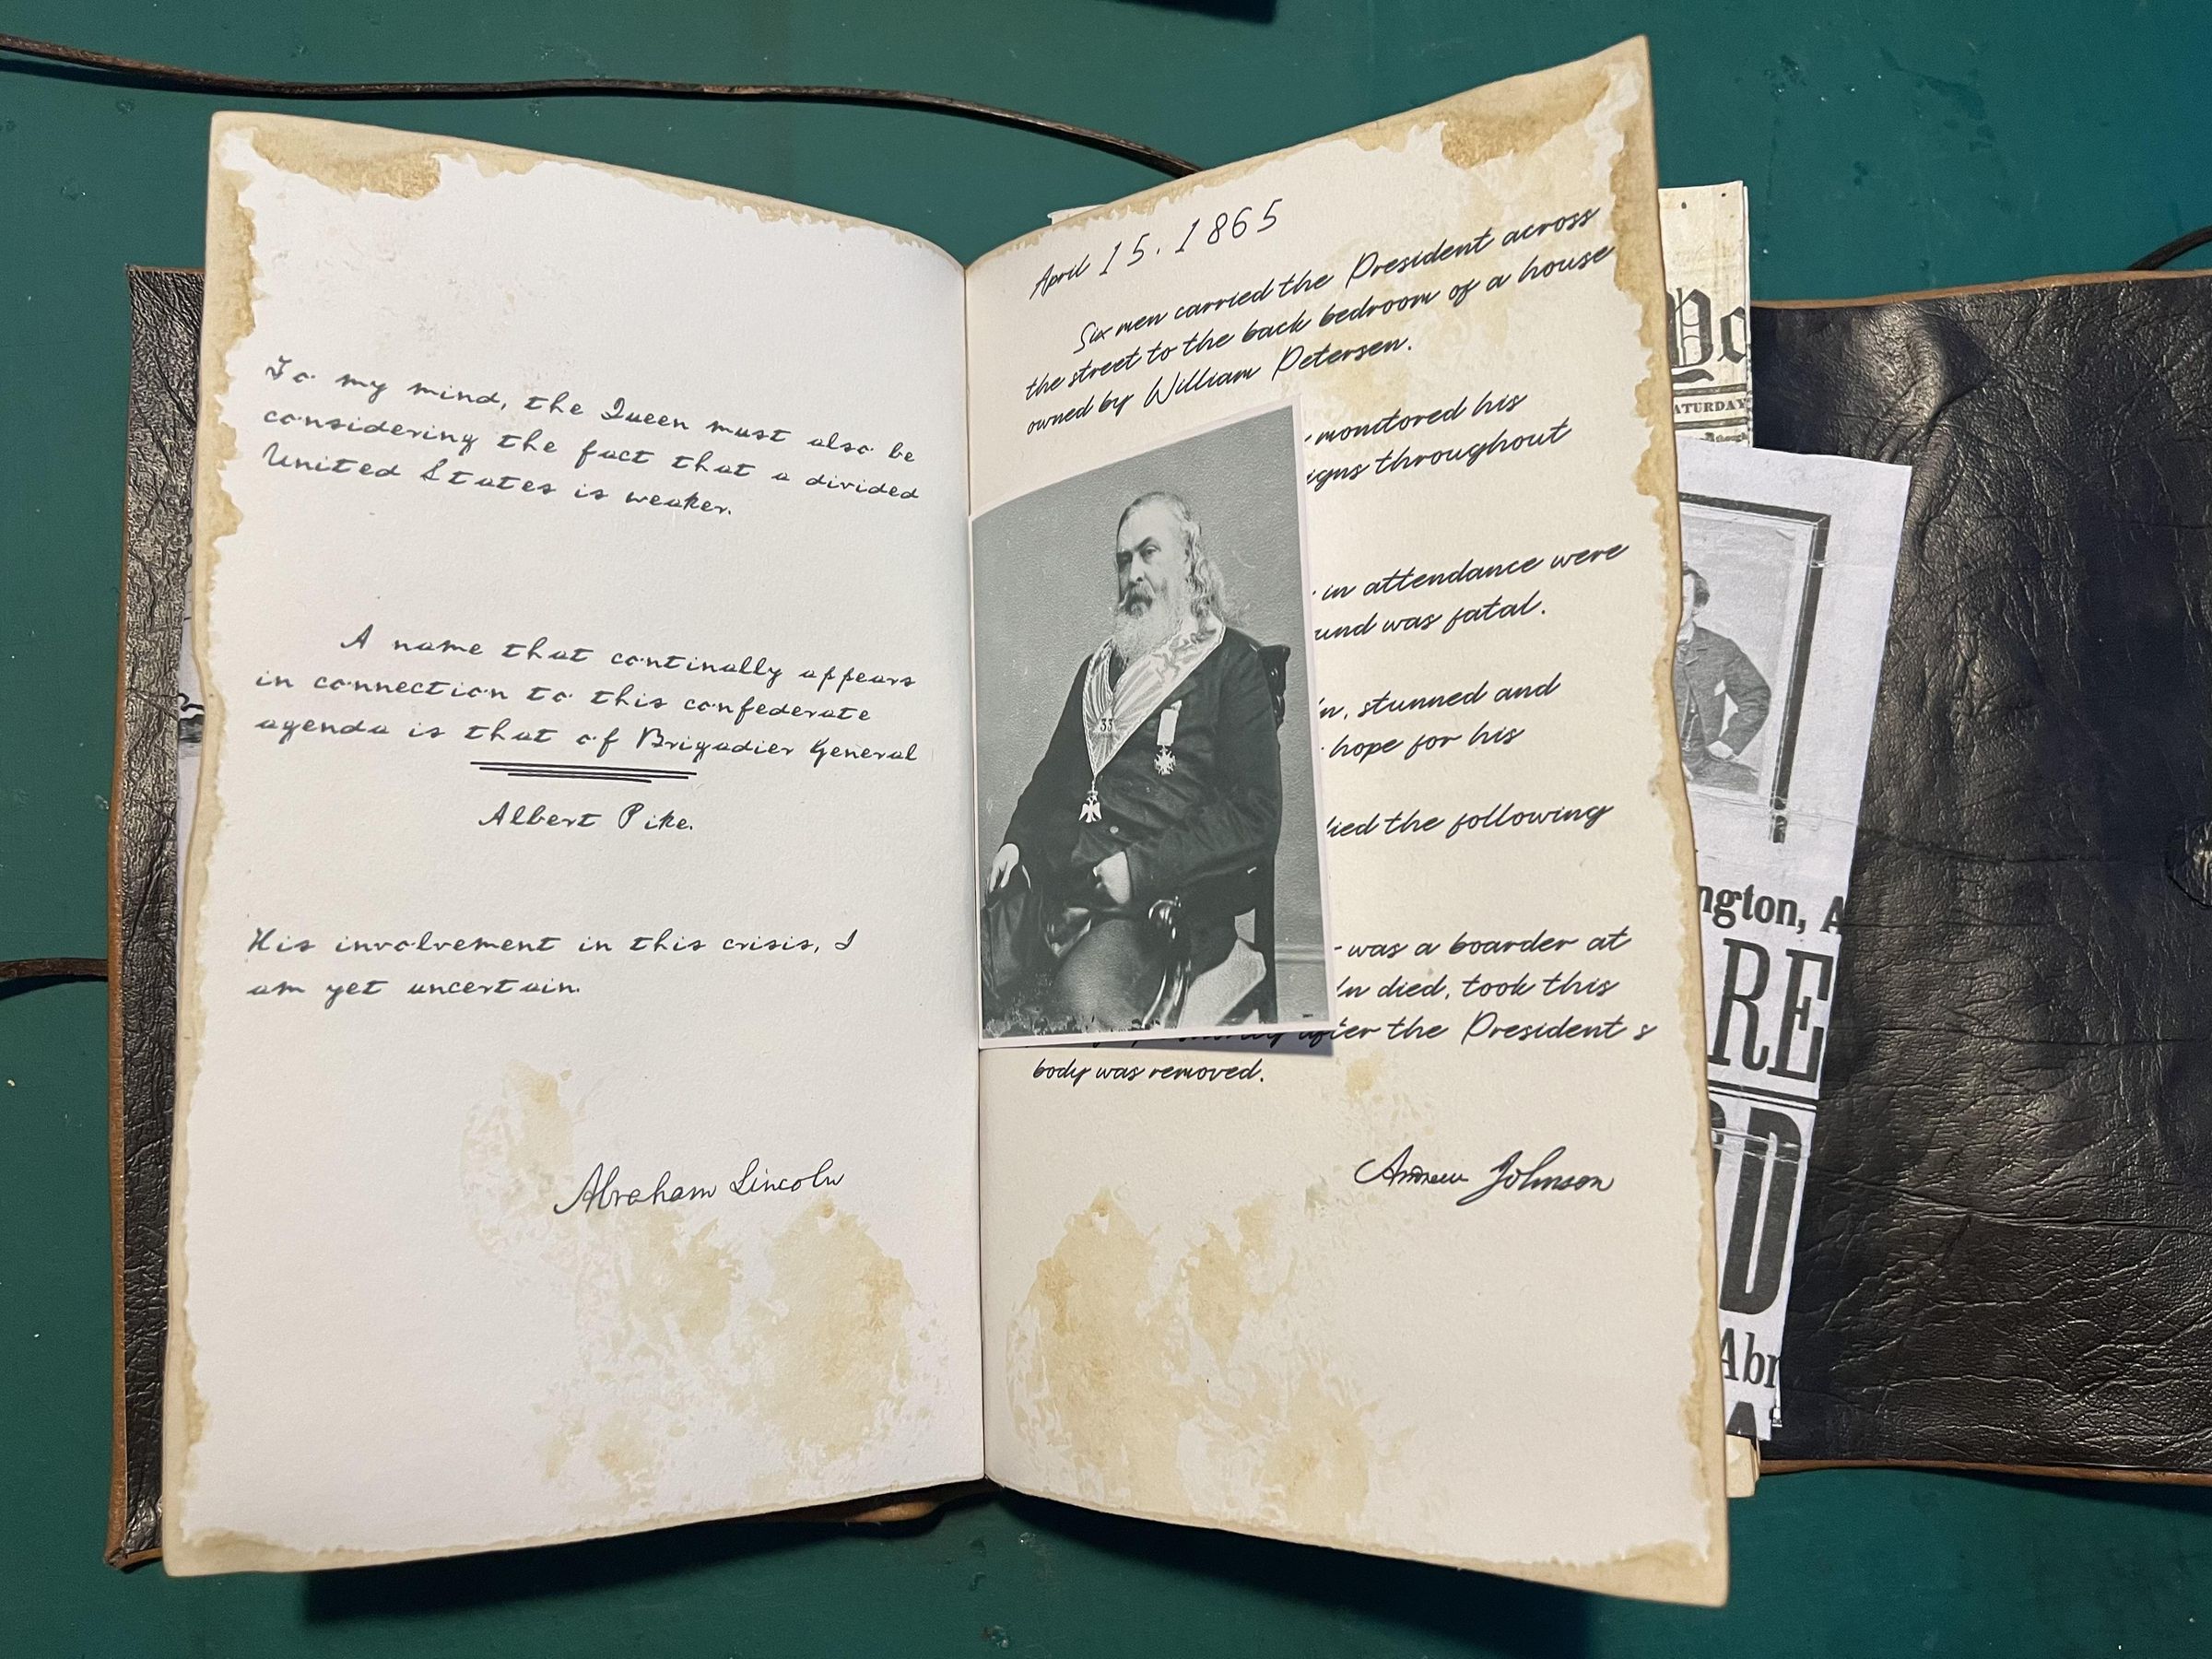 To my mind, the Queen must also be
considering the fact that a divided
United States is weaker.
A name that continally appears
in connection to this confederate
agenda is that of Brigadier General
Albert Pike.
His involvement in this crisis, I
am yet uncertain.
Abraham Lincoln
April 15. 1865
Six men carried the President across
the street to the back bedroom of a house
owned by William Petersen.
monitored his
igns throughout
in attendance were
und was fatal.
ln, stunned and
hope for his
ied the following
was a boarder at
ln died, took this
after the President s
body was removed.
Andrew Johnson
33
ATURDAY
ngton, A
RE
D
Abr
A